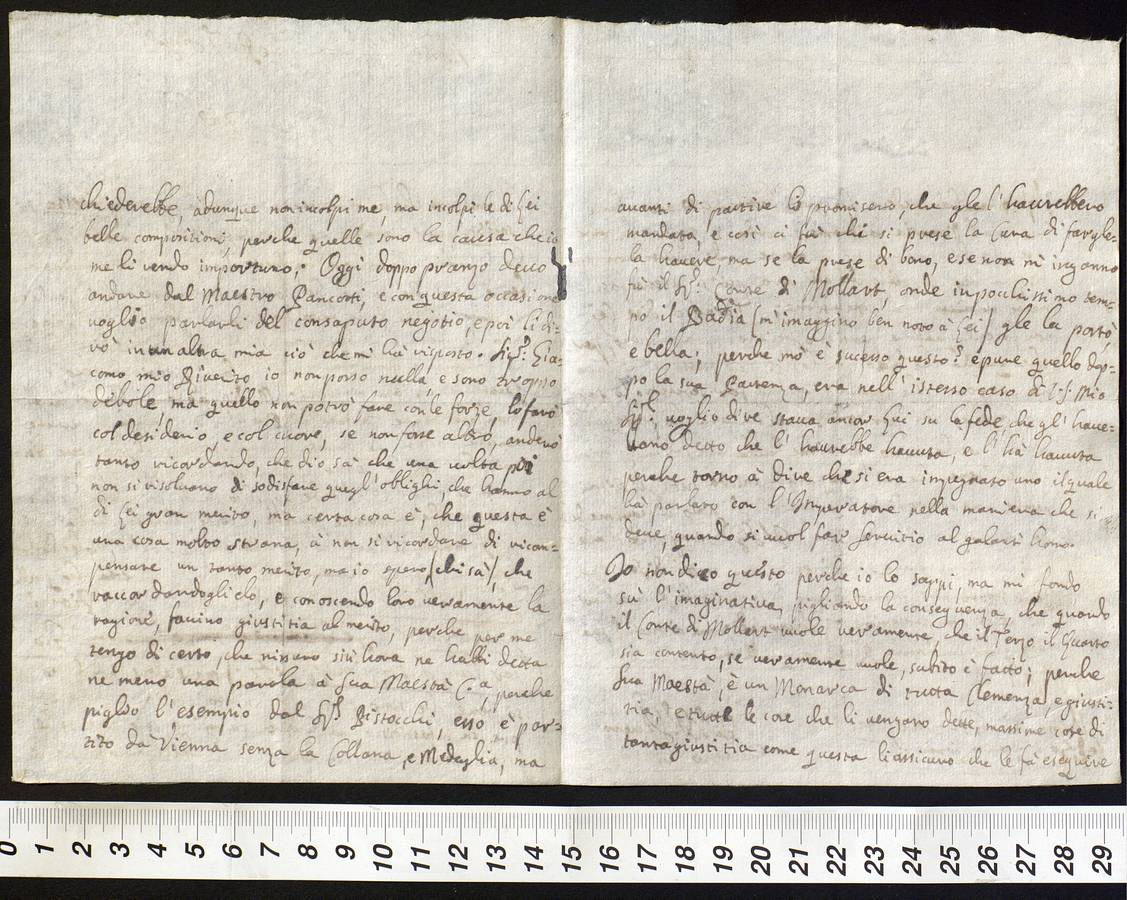 chiederebbe, adunque non incolpi me, ma incolpi le di Lei
belle compositioni, perche quelle sono la causa che io
me li rendo importuno. Oggi doppo pranzo devo
andare dal Maestro Pancotti, e con questa occasione
voglio parlarli del consaputo negotio, e poi li di-
rò in un altra mia ciò che mi hà risposto. Sigr. Gia-
como mio Riverito io non posso nulla, e sono troppo
debole, ma quello non potrò fare con le forze, lo farò
col desiderio, e col cuore, se non forse altro, anderò
tanto ricordando, che dio sà che una volta poi
non si risolvano di sodisfare quegl'oblighi, che hanno al
di Lei gran merito, ma certa cosa è, che questa è
una cosa molto strana, à non si ricordare di ricom-
pensare un tanto merito, ma io spero (chi sà), che
raccordandoglielo, e conoscendo loro veramente la
ragione, farino giustitia al merito, perche per me
tengo di certo, che nissuno sin hora ne habbi detta
ne meno una parola à Sua Maestà C.a, perche
piglio l'esempio dal Sigr. Pistocchi, esso è par-
tito da Vienna senza la Collana, e Medaglia, ma
avanti di partire lo promisero, che gle l'haurebbero
mandata, e così ci fù chi si prese la Cura di fargle-
la havere, ma se la prese di bono, e se non m'inganno
fù il Sigr. Conte di Mollart, onde in pochissimo tem-
po il Badia (m'imaggino ben noto à Lei) gle la portò,
e bella; perche mò è sucesso questo? epure quello dop-
po la sua Partenza, era nell'istesso caso di V.S. Mio
Sigr. voglio dire stava ancor Lui su la fede, che gl'have-
vano detto che l'haurebbe havuta, e l'hà havuta
perche torno à dire che si era impegnato uno il quale
hà parlato con l'Imperatore nella maniera che si
deve, quando si vuol far servitio al galant homo.
Io non dico questo perche io lo sappi, ma mi fondo
sù l'imaginativa, pigliando la conseguenza, che quando
il Conte di Mollart vuole veramente, che il Terzo il Quarto
sia contento, se veramente vuole, subito è fatto; perche
Sua Maestà, è un Monarca di tutta Clemenza, e giusti-
tia, e tutte le cose che li vengano dette, massime cose di
tanta giustitia come questa li assicuro che le fà eseguire